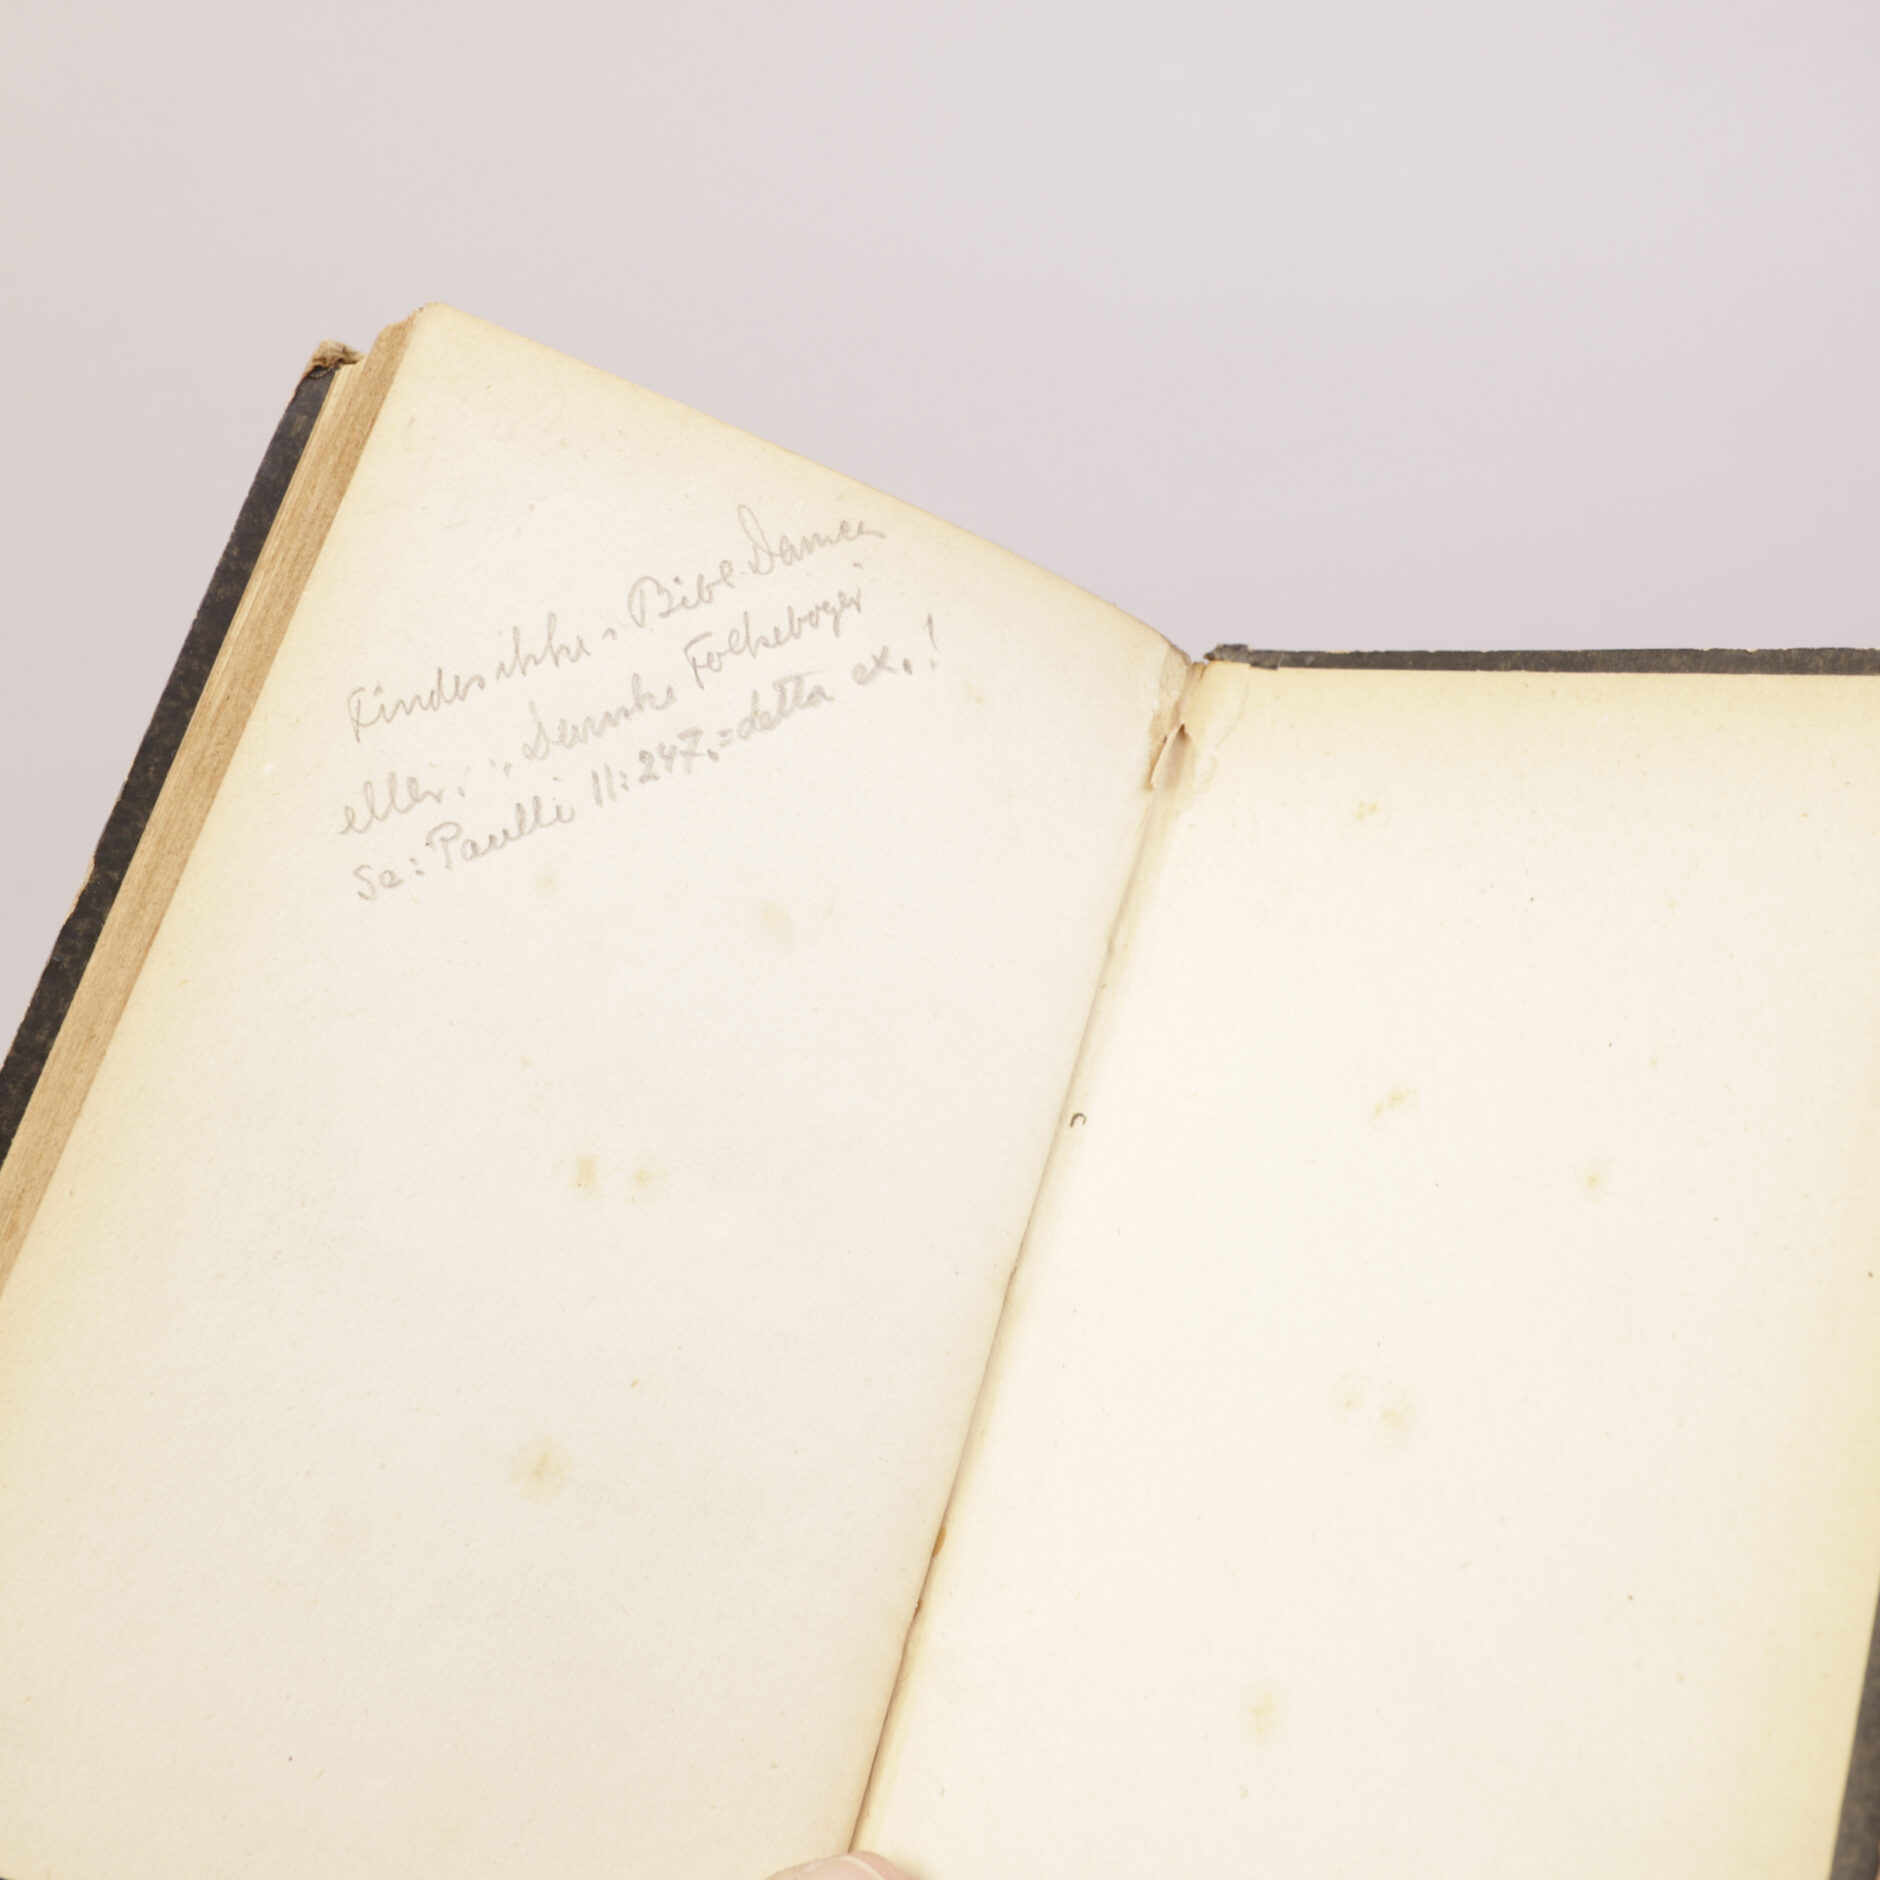 Findes ikke i Bibl. Danica
eller i „Danske Folkebøger"
Se: Paulli II: 247. = detta ex.!